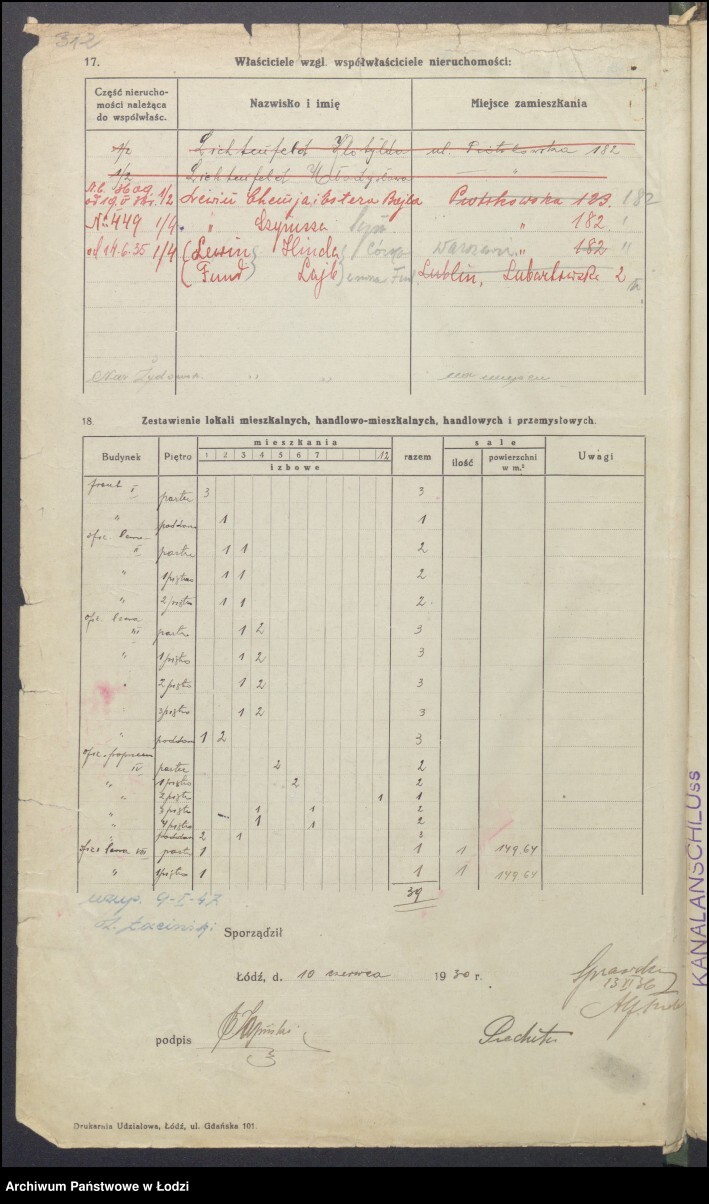 312
17. Właściciele wzgl. współwłaściciele nieruchomości:
Część nierucho-
mości należąca
do współwłaśc.
Nazwisko i imię
Miejsce zamieszkania
1/2 Lichtenfeld Klotylda ul. Piotrkowska 182
1/2 Lichtenfeld Władysław
1/2 Lewin Chemja i Estera Bajla Piotrkowska 123. 182
No 449 1/4 " Szymsza " 182 "
od 14.6.35 1/4 (Lewin Hinda) Córka Warszawa " 182 "
(Fund Lajb) Lublin, Lubartowska 2
na miejscu
18. Zestawienie lokali mieszkalnych, handlowo-mieszkalnych, handlowych i przemysłowych.
Budynek Piętro mieszkania razem sale Uwagi
1 2 3 4 5 6 7 12
izbowe
ilość powierzchni
w m.²
front I parter 3 3
" poddasze 1 1
ofic. lewa
II parter 1 1 2
" 1 piętro 1 1 2
" 2 piętro 1 1 2
ofic. lewa
III parter 1 2 3
" 1 piętro 1 2 3
" 2 piętro 1 2 3
3 piętro 1 2 3
" poddasze 1 2 3
ofic. poprzeczna
IV parter 2 2
" 1 piętro 2 2
" 2 piętro 1 1
" 3 piętro 1 1 2
" 4 piętro 1 1 2
" poddasze 2 1 3
ofic. lewa VII parter 1 1 1 149,64
" 1 piętro 1 1 1 149,64
39
9-I-47
Sporządził
Łódź, d. 10 czerwca 1930 r.
13 VI 36
podpis
Drukarnia Udziałowa, Łódź, ul. Gdańska 101
KANALANSCHLUSS
Archiwum Państwowe w Łodzi